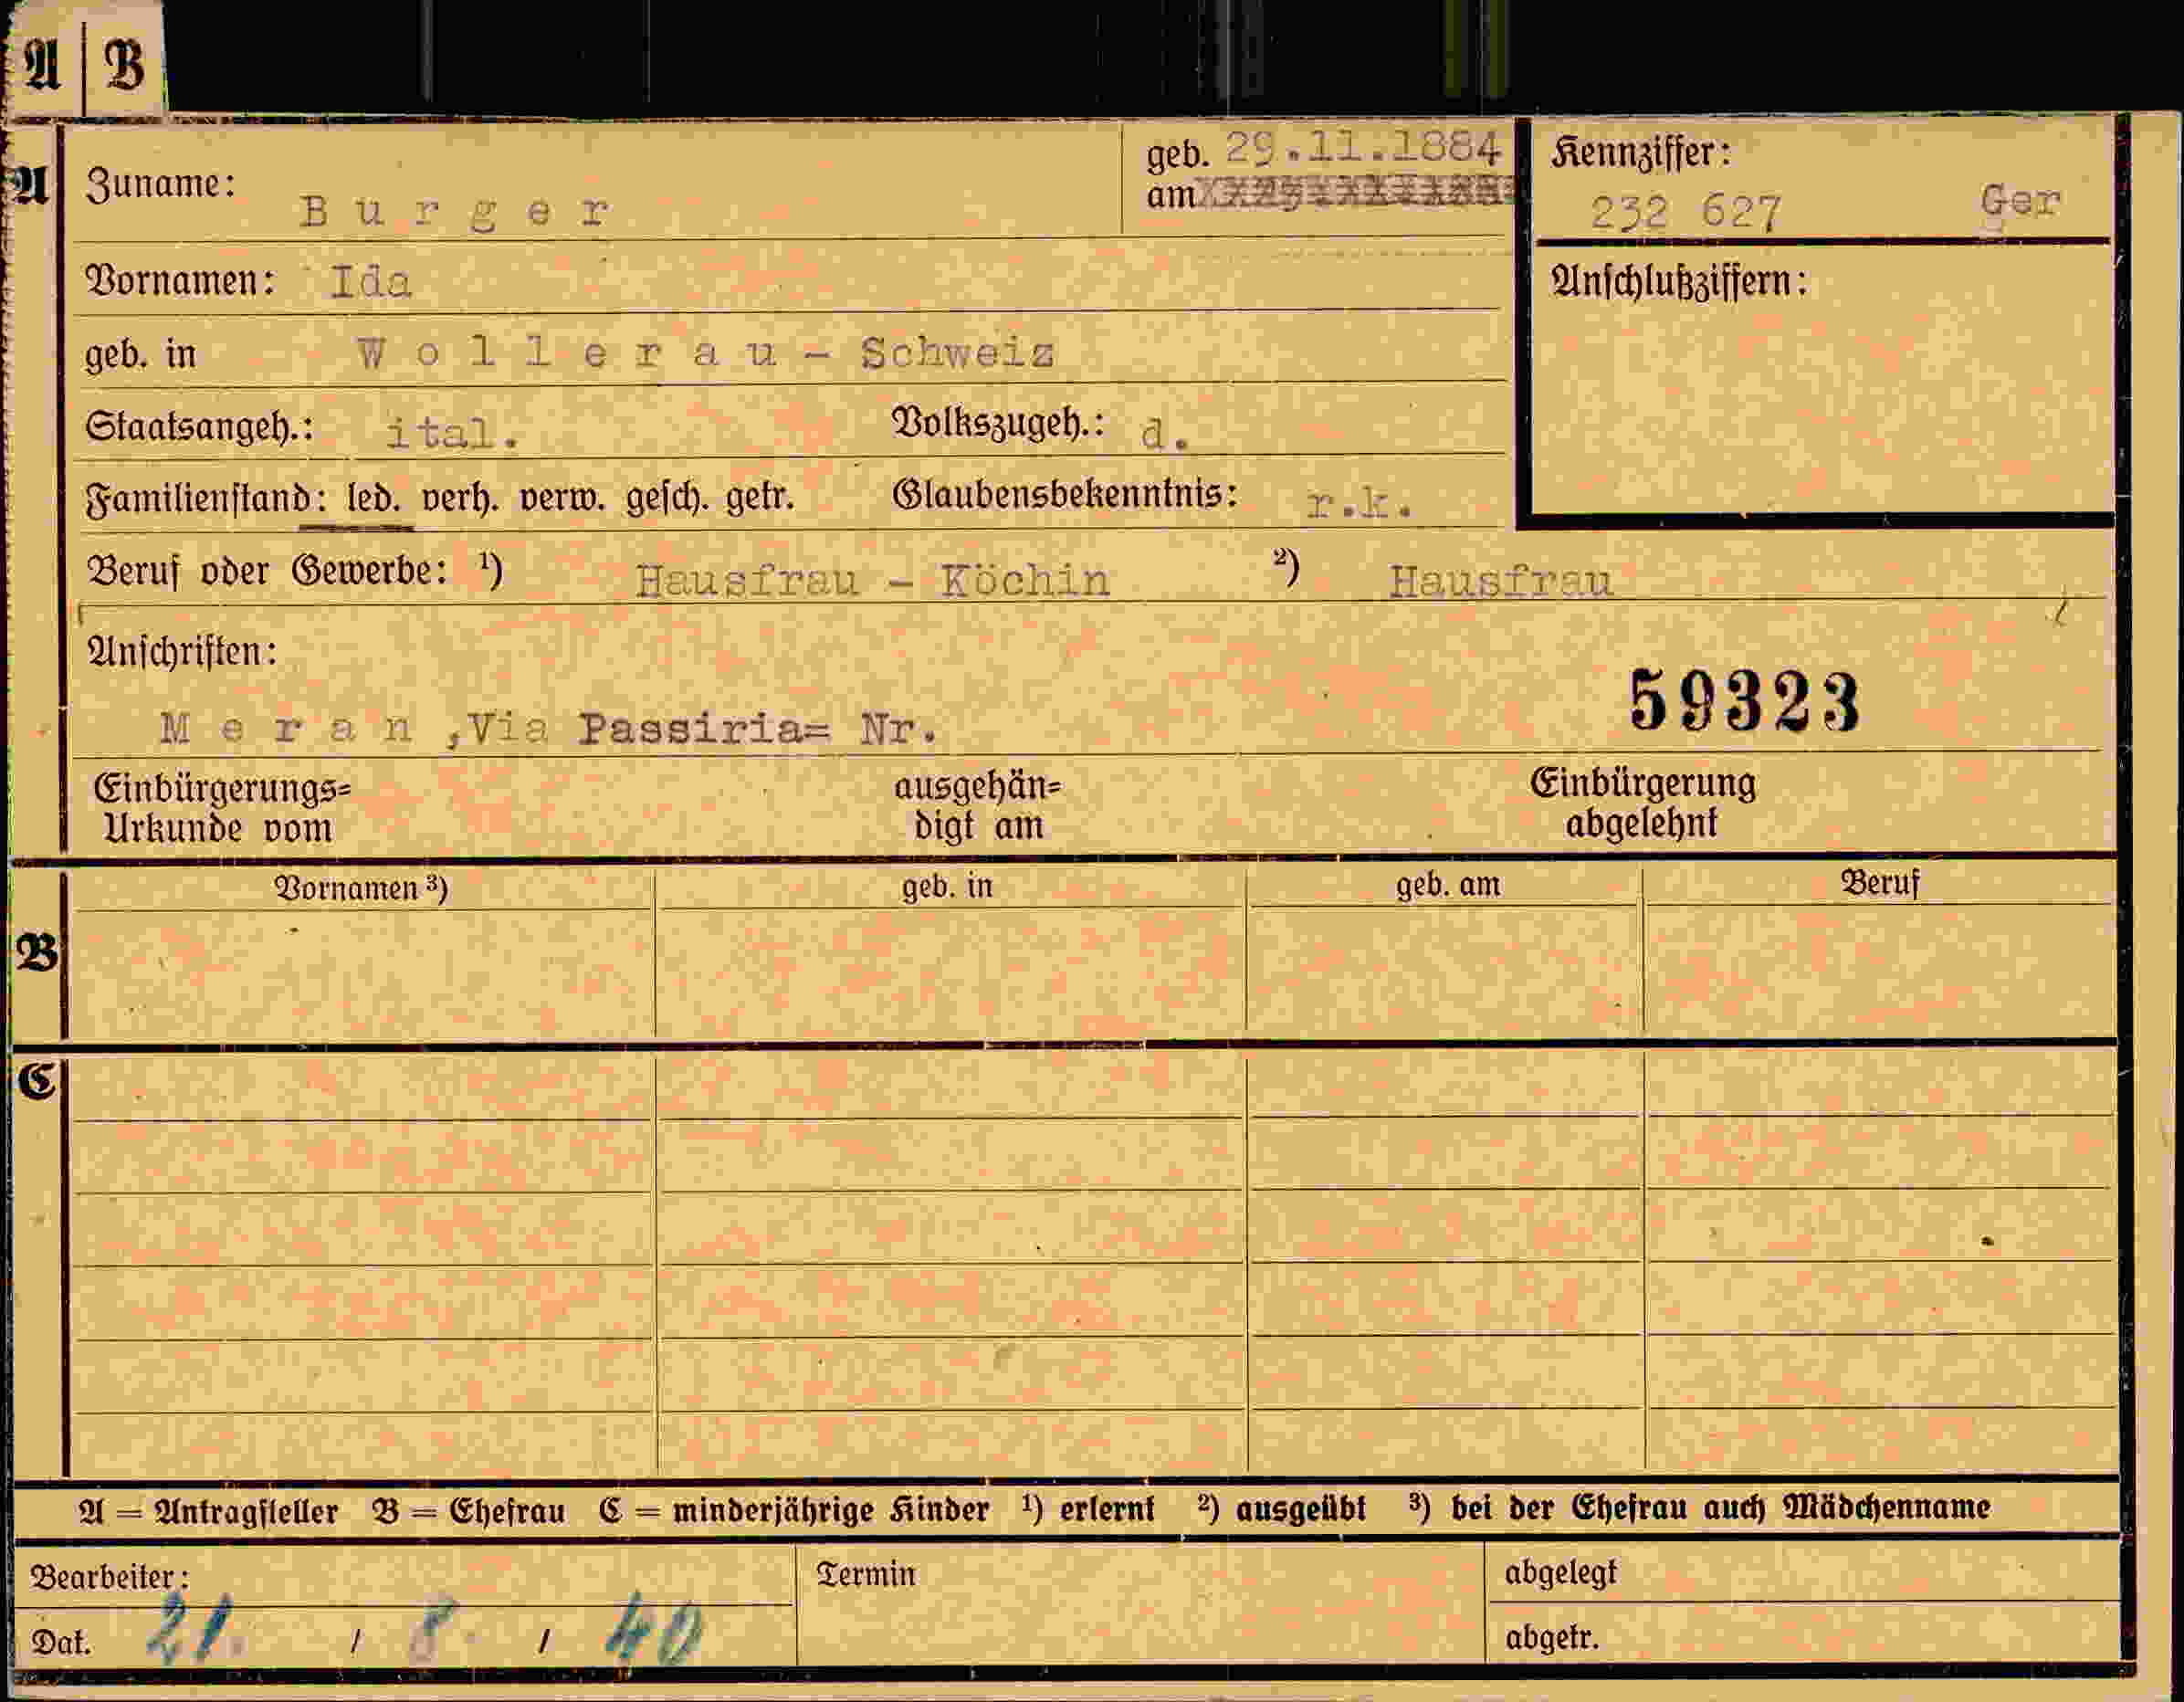 A | B
A Zuname: Burger geb. am 29.11.1884 Kennziffer: 232 627 Ger
Vornamen: Ida Anschlußziffern:
geb. in Wollerau - Schweiz
Staatsangeh.: ital. Volkszugeh.: d.
Familienstand: led. verh. verw. gesch. getr. Glaubensbekenntnis: r.k.
Beruf oder Gewerbe: ¹) Hausfrau - Köchin ²) Hausfrau
Anschriften:
59323
Meran ,Via Passiria= Nr.
Einbürgerungs= ausgehän= Einbürgerung
Urkunde vom digt am abgelehnt
Vornamen ³) geb. in geb. am Beruf
B
C
A = Antragsteller B = Ehefrau C = minderjährige Kinder ¹) erlernt ²) ausgeübt ³) bei der Ehefrau auch Mädchenname
Bearbeiter: Termin abgelegt
Dat. 21. / 8. / 40 abgetr.